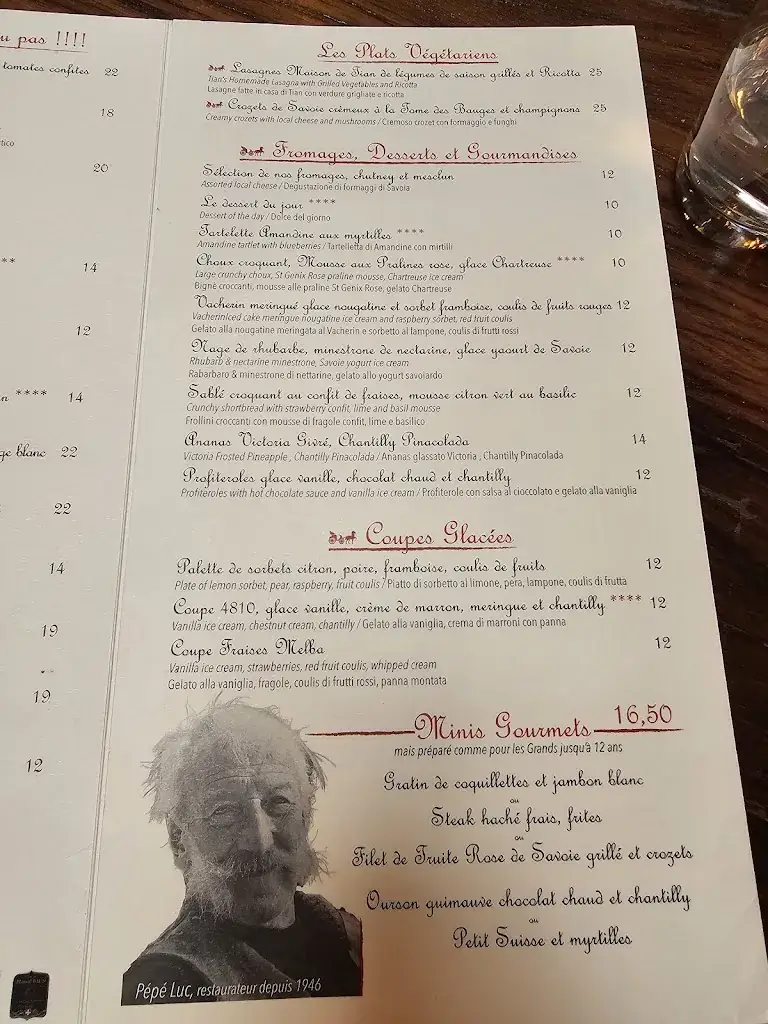 u pas !!!!
tomates confites 22
18
tico
20
** 14
12
n **** 14
ge blanc 22
22
14
19
19
12
Les Plats Végétariens
Lasagnes Maison de Tian de légumes de saison grillés et Ricotta 25
Tian's Homemade Lasagna with Grilled Vegetables and Ricotta
Lasagne fatte in casa di Tian con verdure grigliate e ricotta
Crozets de Savoie crémeux à la Tome des Bauges et champignons 25
Creamy crozets with local cheese and mushrooms / Cremoso crozet con formaggio e funghi
Fromages, Desserts et Gourmandises
Sélection de nos fromages, chutney et mesclun 12
Assorted local cheese / Degustazione di formaggi di Savoia
Le dessert du jour **** 10
Dessert of the day / Dolce del giorno
Tartelette Amandine aux myrtilles **** 10
Amandine tartlet with blueberries / Tartelletta di Amandine con mirtilli
Choux croquant, Mousse aux Pralines rose, glace Chartreuse **** 10
Large crunchy choux, St Genix Rose praline mousse, Chartreuse ice cream
Bignè croccanti, mousse alle praline St Genix Rose, gelato Chartreuse
Vacherin meringué glace nougatine et sorbet framboise, coulis de fruits rouges 12
Vacherinniced cake meringue nougatine ice cream and raspberry sorbet, red fruit coulis
Gelato alla nougatine meringata al Vacherin e sorbetto al lampone, coulis di frutti rossi
Nage de rhubarbe, minestrone de nectarine, glace yaourt de Savoie 12
Rhubarb & nectarine minestrone, Savoie yogurt ice cream
Rabarbaro & minestrone di nettarine, gelato allo yogurt savoiardo
Sablé croquant au confit de fraises, mousse citron vert au basilic 12
Crunchy shortbread with strawberry confit, lime and basil mousse
Frollini croccanti con mousse di fragole confit, lime e basilico
Ananas Victoria Givré, Chantilly Pinacolada 14
Victoria Frosted Pineapple , Chantilly Pinacolada / Ananas glassato Victoria , Chantilly Pinacolada
Profiteroles glace vanille, chocolat chaud et chantilly 12
Profiteroles with hot chocolate sauce and vanilla ice cream / Profiterole con salsa al cioccolato e gelato alla vaniglia
Coupes Glacées
Palette de sorbets citron, poire, framboise, coulis de fruits 12
Plate of lemon sorbet, pear, raspberry, fruit coulis / Piatto di sorbetto al limone, pera, lampone, coulis di frutta
Coupe 4810, glace vanille, crème de marron, meringue et chantilly **** 12
Vanilla ice cream, chestnut cream, chantilly / Gelato alla vaniglia, crema di marroni con panna
Coupe Fraises Melba 12
Vanilla ice cream, strawberries, red fruit coulis, whipped cream
Gelato alla vaniglia, fragole, coulis di frutti rossi, panna montata
Minis Gourmets 16,50
mais préparé comme pour les Grands jusqu'à 12 ans
Gratin de coquillettes et jambon blanc
ou
Steak haché frais, frites
ou
Filet de Truite Rose de Savoie grillé et crozets
Ourson guimauve chocolat chaud et chantilly
ou
Petit Suisse et myrtilles
Pépé Luc, restaurateur depuis 1946